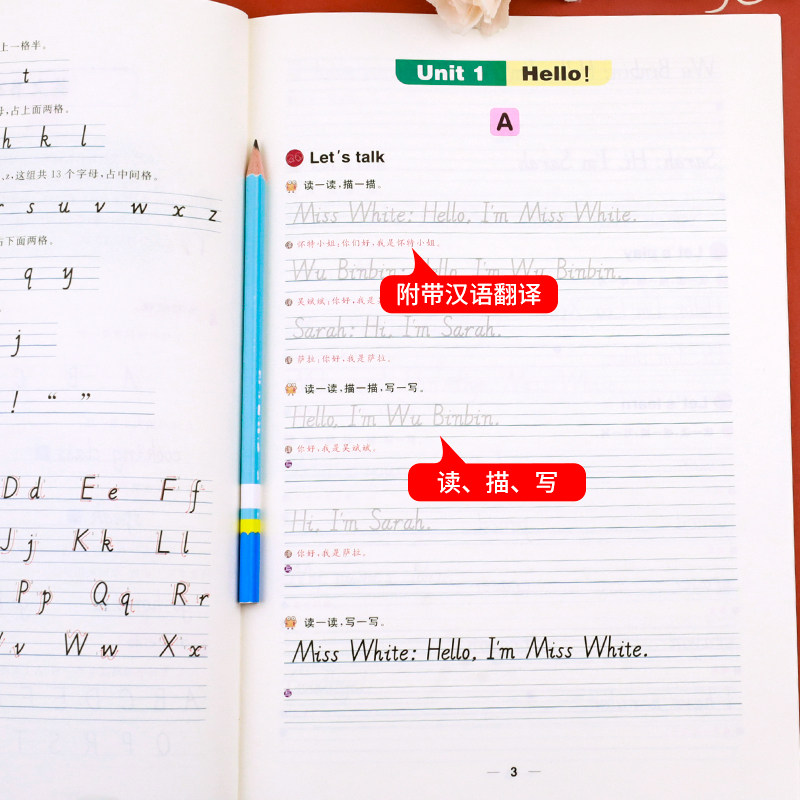 上一格半。
t
,占上面两格。
h k l
z,这组共 13 个字母,占中间格。
r s u v w x z
下面两格。
q y
j
! “ ”
D d E e F f
J j K k L l
P p Q q R r
v W w X x
Unit 1 Hello!
A
Let's talk
读一读,描一描。
Miss White: Hello, I'm Miss White.
怀特小姐:你们好,我是怀特小姐。
Wu Binbin: Hello, I'm Wu Binbin.
附带汉语翻译
吴斌斌:你好,我是
Sarah: Hi, I'm Sarah.
萨拉:你好,我是萨拉。
读一读,描一描,写一写。
Hello, I'm Wu Binbin.
你好,我是吴斌斌。
读、描、写
Hi, I'm Sarah.
你好,我是萨拉。
读一读,写一写。
Miss White: Hello, I'm Miss White.
— 3 —